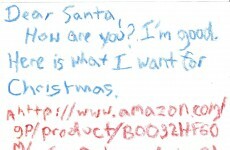 Dear Santa,
How are you? I'm good.
Here is what I want for
Christmas.
http://www.amazon.com/
gp/product/B0032HF60